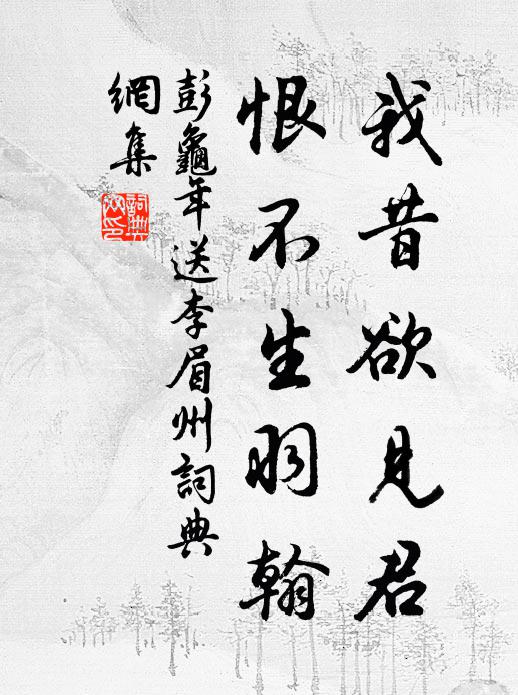 我昔欲見君
恨不生羽翰
彭龜年送李眉州詞典
網集
詞典網印